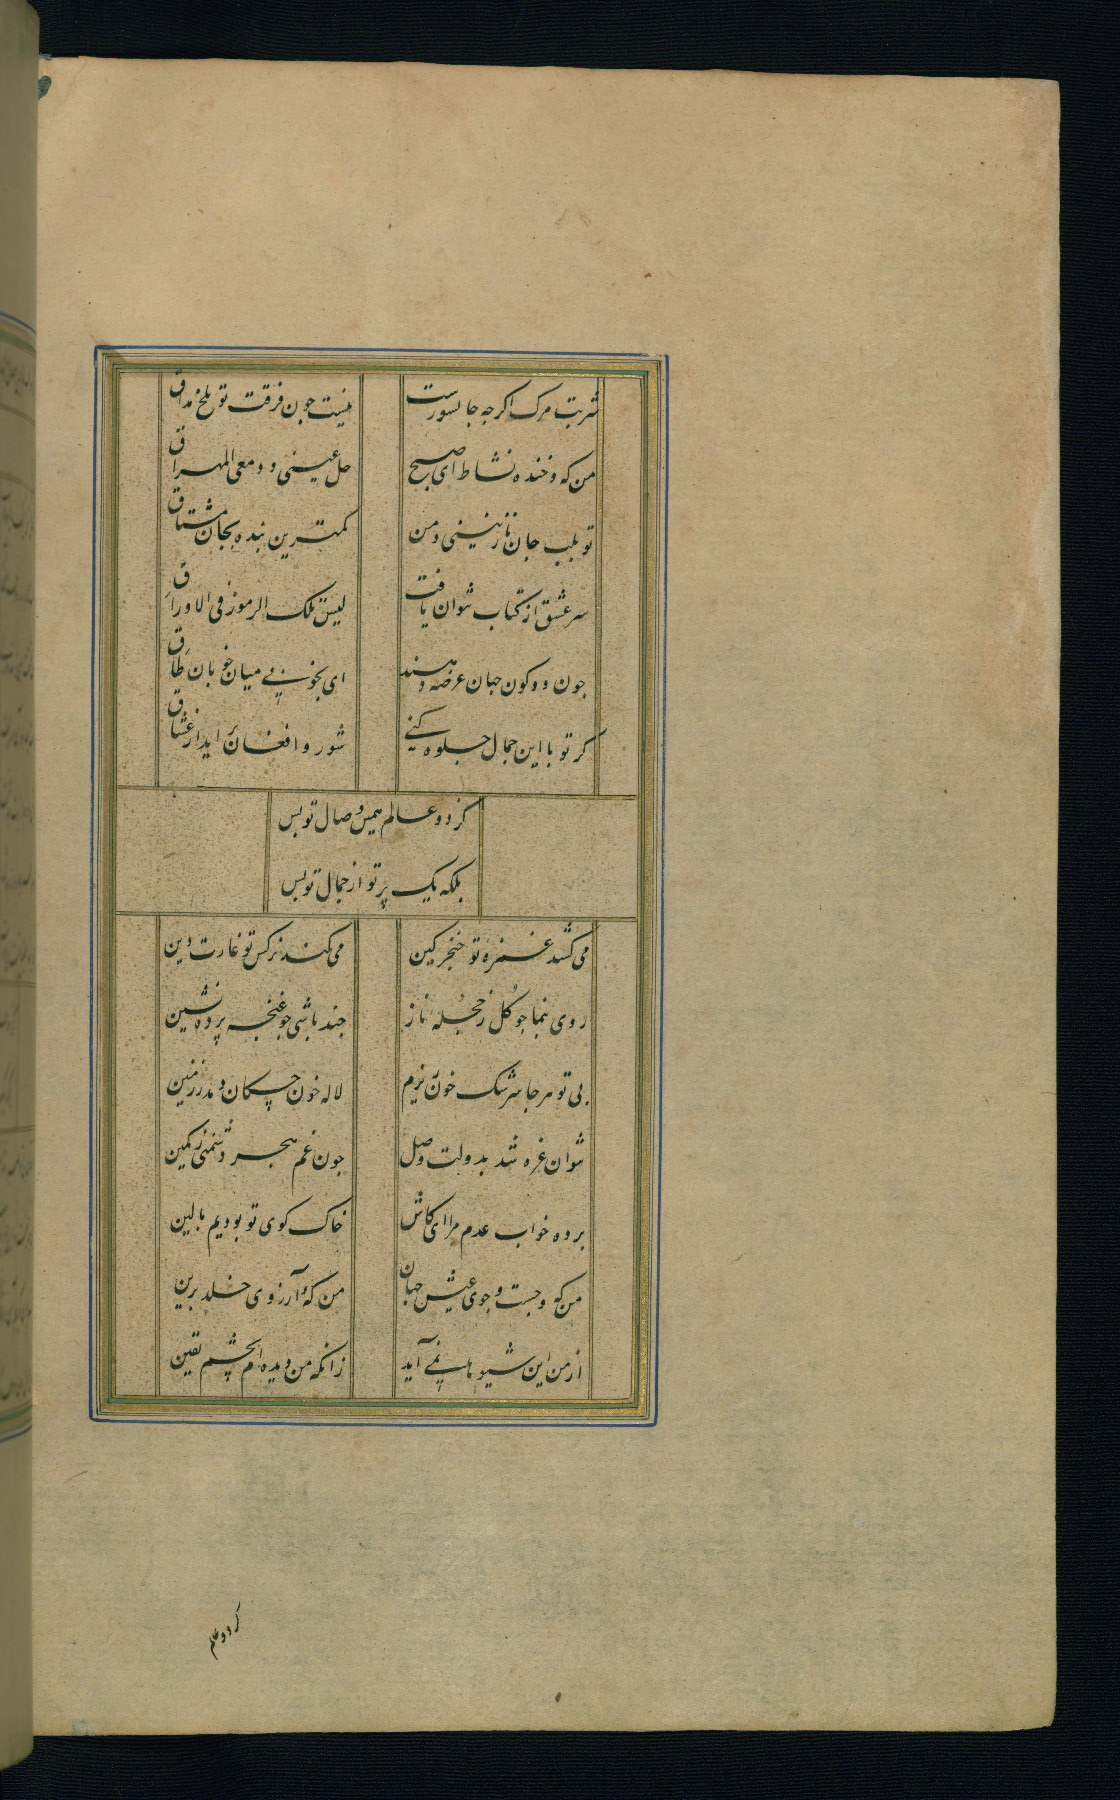 شربت مرک اکرچه جانسوزست
نیست جون فرقت تو تلخ مذاق
من که و خنده نشاط ای صبح
حل عینی و دمعی المهراق
تو بلب جان نازنینی و من
کمترین بنده بجان مشتاق
سر عشق از کتاب نتوان یافت
لیس تلک الرموز فی الاوراق
جون دو کون جهان عرضه دهند
ای بخوبی میان خوبان طاق
کر تو با این جمال جلوه کنی
شور و افغان برآید از عشاق
کز دو عالم همین وصال تو بس
بلکه یک پرتو از جمال تو بس
می کشد غمزه تو خنجر کین
می کند نرکس تو غارت دین
روی بنما جو کل ز حجله ناز
جند باشی جو غنجه پرده نشین
بی تو هر جا سرشک خون ریزم
لاله خون چکان دمد ز زمین
نتوان غره شد بدولت وصل
جون غم هجر دشمنی ز کمین
برده خواب عدم مرا ای کاش
خاک کوی تو بودیم بالین
من که و جست و جوی عیش جهان
من که و آرزوی خلد برین
از من این شیوها نمی آید
زانکه من دیده ام بچشم یقین
کز دو عالم